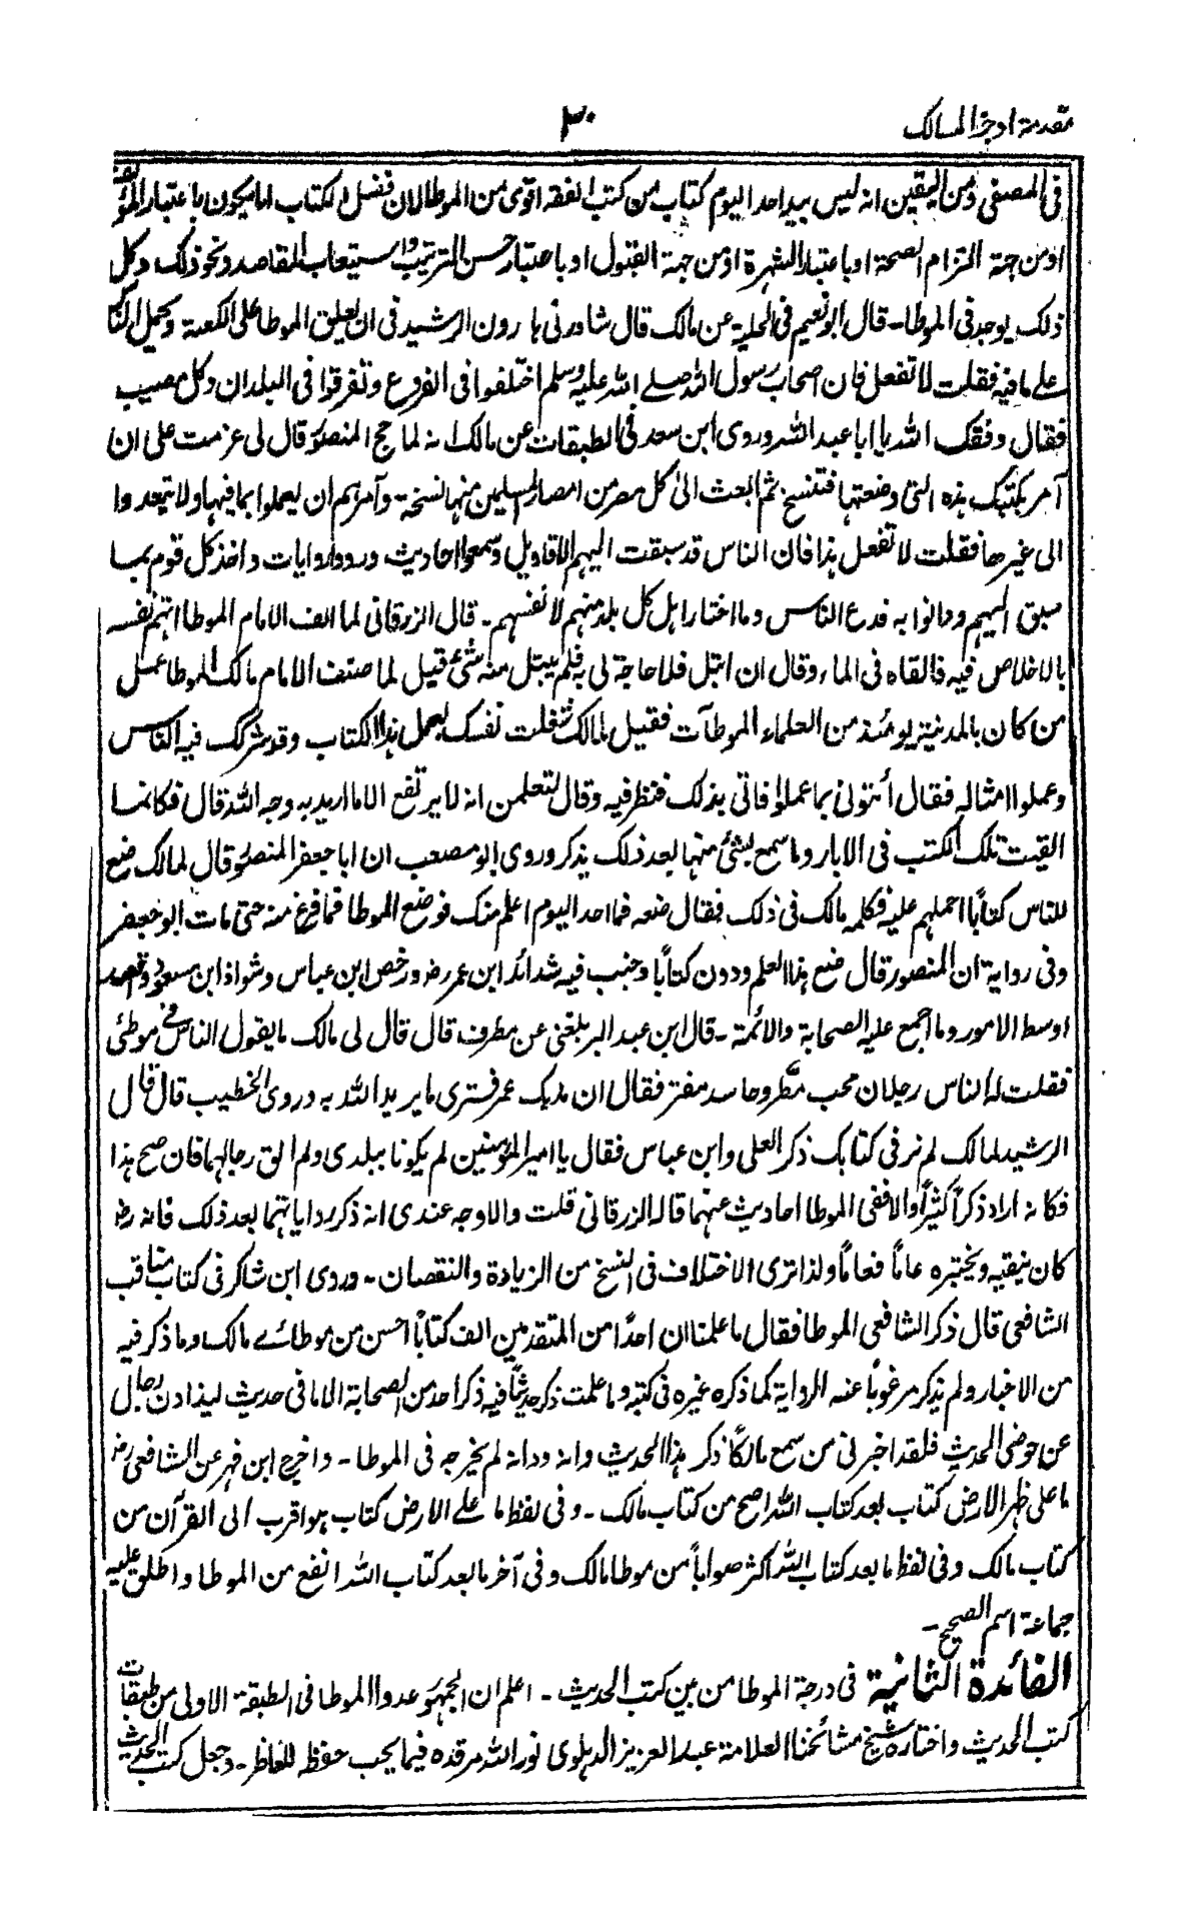 مقدمة اوجز المسالك
٣٠
فى المصفى ومن اليقين انه ليس بيد احد اليوم كتاب من كتب الفقه اقوى من الموطا لان فضل الكتاب اما يكون باعتبار المؤلف
او من جهة التزام الصحة او باعتبار الشهرة او من جهة القبول او باعتبار حسن الترتيب واستيعاب المقاصد ونحو ذلك وكل
ذلك يوجد فى الموطا۔ قال ابو نعيم فى الحلية عن مالك قال شاورنى هارون الرشيد فى ان يعلق الموطا على الكعبة ويحمل الناس
على ما فيه فقلت لا تفعل فان اصحاب رسول الله صلى الله عليه وسلم اختلفوا فى الفروع وتفرقوا فى البلدان وكل مصيب
فقال وفقك الله يا ابا عبد الله وروى ابن سعد فى الطبقات عن مالك انه لما حج المنصور قال لى عزمت على ان
آمر بكتبك هذه التى وضعتها فتنسخ ثم ابعث الى كل مصر من امصار المسلمين منها نسخة وآمرهم ان يعملوا بما فيها ولا يتعدوا
الى غيرها فقلت لا تفعل هذا فان الناس قد سبقت اليهم الاقاويل وسمعوا احاديث ورووا روايات واخذ كل قوم بما
سبق اليهم ودانوا به فدع الناس وما اختار اهل كل بلد منهم لانفسهم۔ قال الزرقانى لما الف الامام الموطا اتهم نفسه
بالاخلاص فيه فالقاه فى الماء وقال ان ابتل فلا حاجة لى به فلم يبتل منه شئ قيل لما صنف الامام مالك الموطا عمل
من كان بالمدينة يومئذ من العلماء الموطآت فقيل لمالك شغلت نفسك بعمل هذا الكتاب وقد شركك فيه الناس
وعملوا امثاله فقال أئتونى بما عملوا فاتى بذلك فنظر فيه وقال لتعلمن انه لا يرتفع الا ما اريد به وجه الله قال فكانما
القيت تلك الكتب فى الابار وما سمع لشئ منها بعد ذلك يذكر وروى ابو مصعب ان ابا جعفر المنصور قال لمالك ضع
للناس كتابًا احملهم عليه فكلمه مالك فى ذلك فقال ضعه فما احد اليوم اعلم منك فوضع الموطا فما فرغ منه حتى مات ابو جعفر
وفى رواية ان المنصور قال ضع هذا العلم ودون كتابًا وجنب فيه شدائد ابن عمر رض ورخص ابن عباس وشواذ ابن مسعود واقصد
اوسط الامور وما اجمع عليه الصحابة والائمة۔ قال ابن عبد البر بلغنى عن مطرف قال قال لى مالك ما يقول الناس فى موطئى
فقلت له الناس رجلان محب مطر وحاسد مفتر فقال ان مد بك عمر فسترى ما يريد الله به وروى الخطيب قال قال
الرشيد لمالك لم نر فى كتابك ذكر العلى وابن عباس فقال يا امير المؤمنين لم يكونا ببلدى ولم الق رجالهما فان صح هذا
فكانه اراد ذكرًا كثيرًا والا ففى الموطا احاديث عنهما قاله الزرقانى قلت والاوجه عندى انه ذكر رواياتهما بعد ذلك فانه رض
كان ينقيه ويختبره عامًا فعامًا ولذا ترى الاختلاف فى النسخ من الزيادة والنقصان۔ وروى ابن شاكر فى كتاب مناقب
الشافعى قال ذكر الشافعى الموطا فقال ما علمنا ان احدًا من المتقدمين الف كتابًا احسن من موطائے مالك وما ذكر فيه
من الاخبار ولم يذكر مرغوبًا عنه الرواية كما ذكره غيره فى كتبه وما علمت ذكر حديثًا فيه ذكر احد من الصحابة الا ما فى حديث ليذادن رجال
عن حوضى الحديث فلقد اخبرنى من سمع مالكًا ذكر هذا الحديث وانه ود انه لم يخرجه فى الموطا۔ واخرج ابن فهر عن الشافعى رض
ما على ظهر الارض كتاب بعد كتاب الله اصح من كتاب مالك۔ وفى لفظ ما على الارض كتاب هو اقرب الى القرآن من
كتاب مالك وفى لفظ ما بعد كتاب الله اكثر صوابًا من موطا مالك وفى آخر ما بعد كتاب الله انفع من الموطا واطلق عليه
جماعة اسم الصحيح۔
الفائدة الثانية فى درجة الموطا من بين كتب الحديث۔ اعلم ان الجمهور عدوا الموطا فى الطبقة الاولى من طبقات
كتب الحديث واختاره شيخ مشائخنا العلامة عبد العزيز الدهلوى نور الله مرقده فيما يجب حفظه للناظر۔ وجعل كتب الحديث